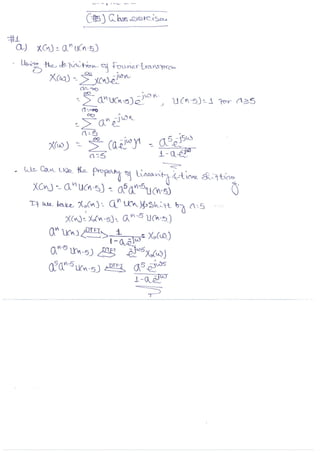 Class exercise
#1
a) x(n) = aⁿ u(n-5)
- Using the definition of Fourier transform
X(ω) = Σ_{n=-∞}^{∞} x(n) e^{-jωn}
= Σ_{n=-∞}^{∞} aⁿ u(n-5) e^{-jωn} , u(n-5) = 1 for n≥5
= Σ_{n=5}^{∞} aⁿ e^{-jωn}
X(ω) = Σ_{n=5}^{∞} (a e^{-jω})ⁿ = a⁵ e^{-j5ω} / (1 - a e^{-jω})
- We can use the property of linearity & time shifting
x(n) = aⁿ u(n-5) = a⁵ aⁿ⁻⁵ u(n-5)
If we take x₀(n) = aⁿ u(n) shift by n=5
x(n) = x₀(n-5) = aⁿ⁻⁵ u(n-5)
aⁿ u(n) ⟷DTFT 1 / (1 - a e^{-jω}) = X₀(ω)
aⁿ⁻⁵ u(n-5) ⟷DTFT e^{-jω5} X₀(ω)
a⁵ aⁿ⁻⁵ u(n-5) ⟷DTFT a⁵ e^{-jω5} / (1 - a e^{-jω})